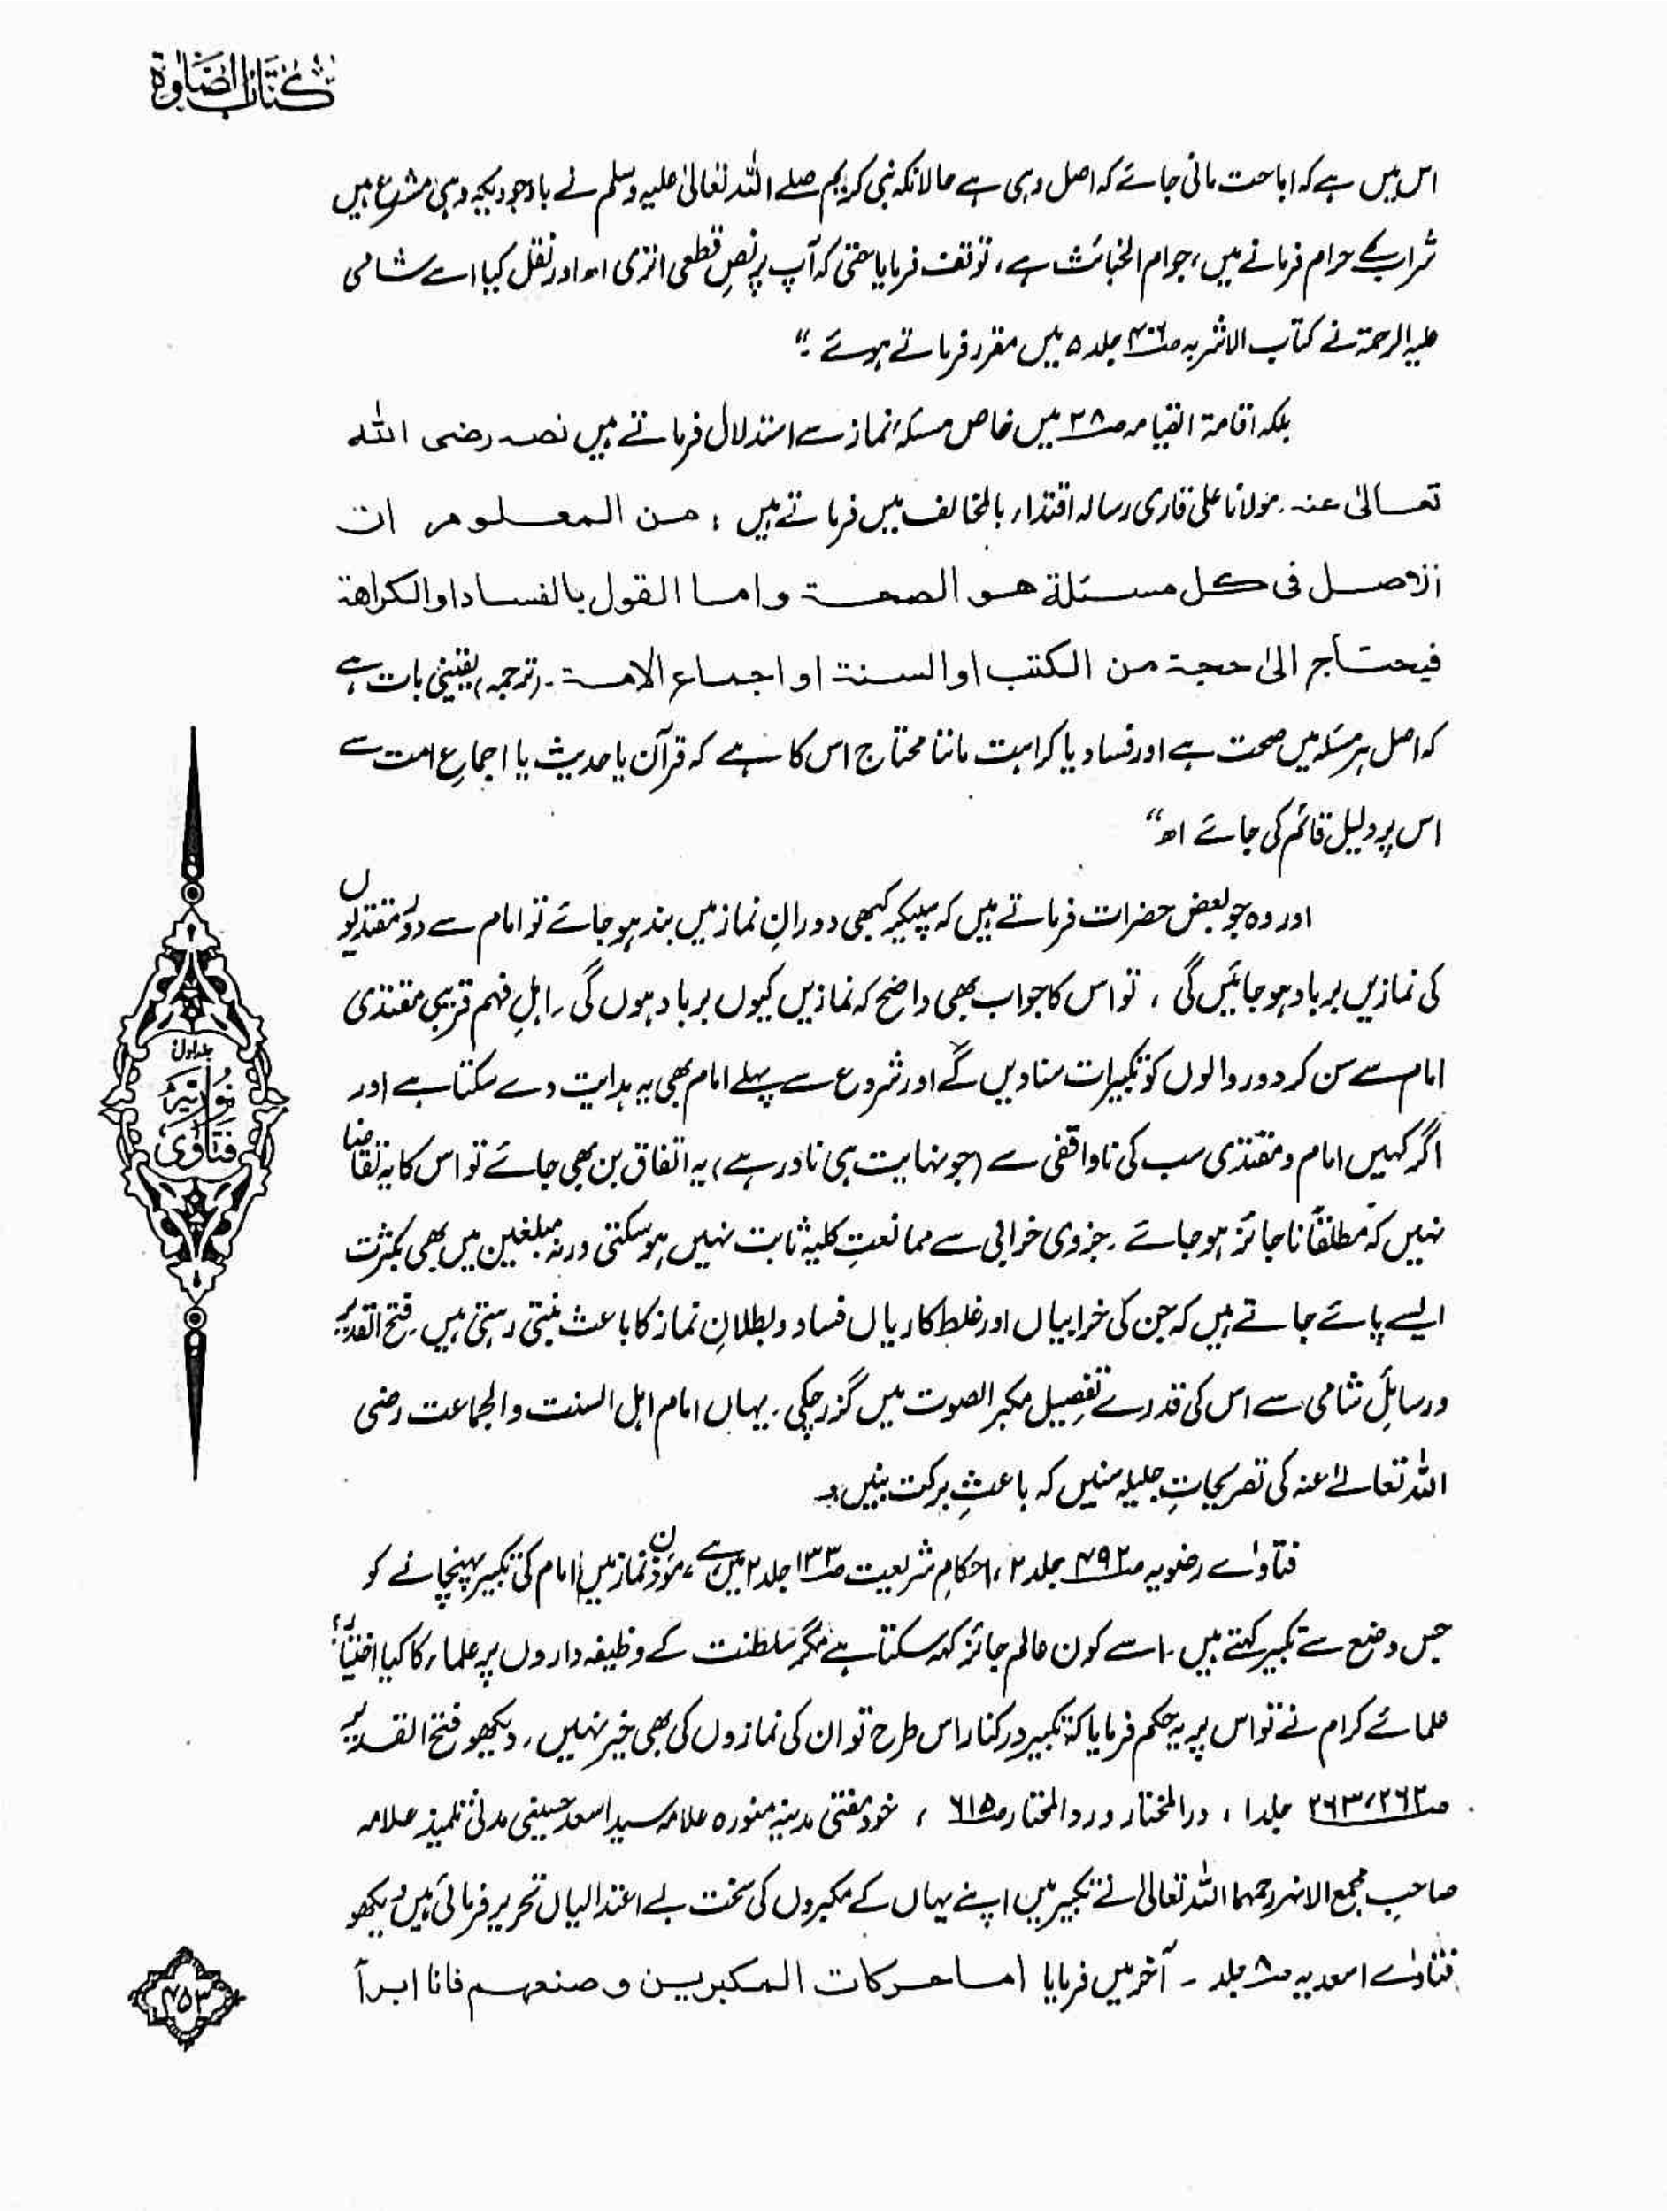 کتاب الصلوۃ
اس میں ہے کہ اباحت مانی جائے کہ اصل وہی ہے حالانکہ نبی کریم صلے اللہ تعالیٰ علیہ وسلم نے باوجودیکہ وہی مشرع ہیں
شراب کے حرام فرمانے میں، جو ام الخبائث ہے، توقف فرمایا حتی کہ آپ پر نصِ قطعی اتری اھ اور نقل کیا اسے شامی
علیہ الرحمۃ نے کتاب الاشربہ صـ۴۰۶ جلد ۵ میں مقرر فرماتے ہوئے ۔"
بلکہ اقامۃ القیامہ صـ۲۸ میں خاص مسئلہ نماز سے استدلال فرماتے ہیں نصہ رضی اللہ
تعالیٰ عنہ ۔ مولانا علی قاری رسالہ اقتداء بالمخالف میں فرماتے ہیں : من المعلوم ان
الاصل فی کل مسئلة هو الصحة واما القول بالفساد او الکراهة
فیحتاج الیٰ حجة من الکتٰب او السنة او اجماع الامة ۔ (ترجمہ) یقینی بات ہے
کہ اصل ہر مسئلہ میں صحت ہے اور فساد یا کراہت ماننا محتاج اس کا ہے کہ قرآن یا حدیث یا اجماعِ امت سے
اس پر دلیل قائم کی جائے اھ"
اور وہ جو بعض حضرات فرماتے ہیں کہ سپیکر کبھی دورانِ نماز میں بند ہو جائے تو امام سے دور مقتدیوں
کی نمازیں برباد ہو جائیں گی ، تو اس کا جواب بھی واضح کہ نمازیں کیوں برباد ہوں گی ۔ اہلِ فہم قریبی مقتدی
امام سے سن کر دور والوں کو تکبیرات سنا دیں گے اور شروع سے پہلے امام بھی یہ ہدایت دے سکتا ہے اور
اگر کہیں امام و مقتدی سب کی ناواقفی سے (جو نہایت ہی نادر ہے) یہ اتفاق بن بھی جائے تو اس کا یہ تقاضا
نہیں کہ مطلقاً ناجائز ہو جائے ۔ جزوی خرابی سے ممانعتِ کلیہ ثابت نہیں ہو سکتی ورنہ مبلغین میں بھی بکثرت
ایسے پائے جاتے ہیں کہ جن کی خرابیاں اور غلط کاریاں فساد و بطلانِ نماز کا باعث بنتی رہتی ہیں ۔ فتح القدیر
و رسائلِ شامی سے اس کی قدرے تفصیل مکبر الصوت میں گزر چکی ۔ یہاں امام اہل السنت والجماعت رضی
اللہ تعالےٰ عنہ کی تصریحاتِ جلیلہ سنیں کہ باعثِ برکت بنیں ۔
فتاواے رضویہ صـ۴۹۲ جلد ۲ ، احکامِ شریعت صـ۱۳۳ جلد ۲ میں ہے ، مؤذن نماز میں امام کی تکبیر پہنچانے کو
جس وضع سے تکبیر کہتے ہیں ۔ اسے کون عالم جائز کہہ سکتا ہے مگر سلطنت کے وظیفہ داروں پر علماء کا کیا اختیار؟
علمائے کرام نے تو اس پر یہ حکم فرمایا کہ تکبیر درکنار اس طرح تو ان کی نمازوں کی بھی خیر نہیں ۔ دیکھو فتح القدیر
صـ۲۶۲، ۲۶۳ جلد ۱ ، در المختار و رد المختار صـ۶۱۵ ، خود مفتی مدینہ منورہ علامہ سید اسعد حسینی مدنی تلمیذ علامہ
صاحبِ مجمع الانہر رحمہما اللہ تعالیٰ نے تکبیر میں اپنے یہاں کے مکبروں کی سخت بے اعتدالیاں تحریر فرمائی ہیں دیکھو
فتاواے اسعدیہ صـ۸ جلد ۔ آخر میں فرمایا اما حرکات المکبرین و صنعهم فانا ابرأ
جلد اول
نوریہ
فتاوی
۴۵۳